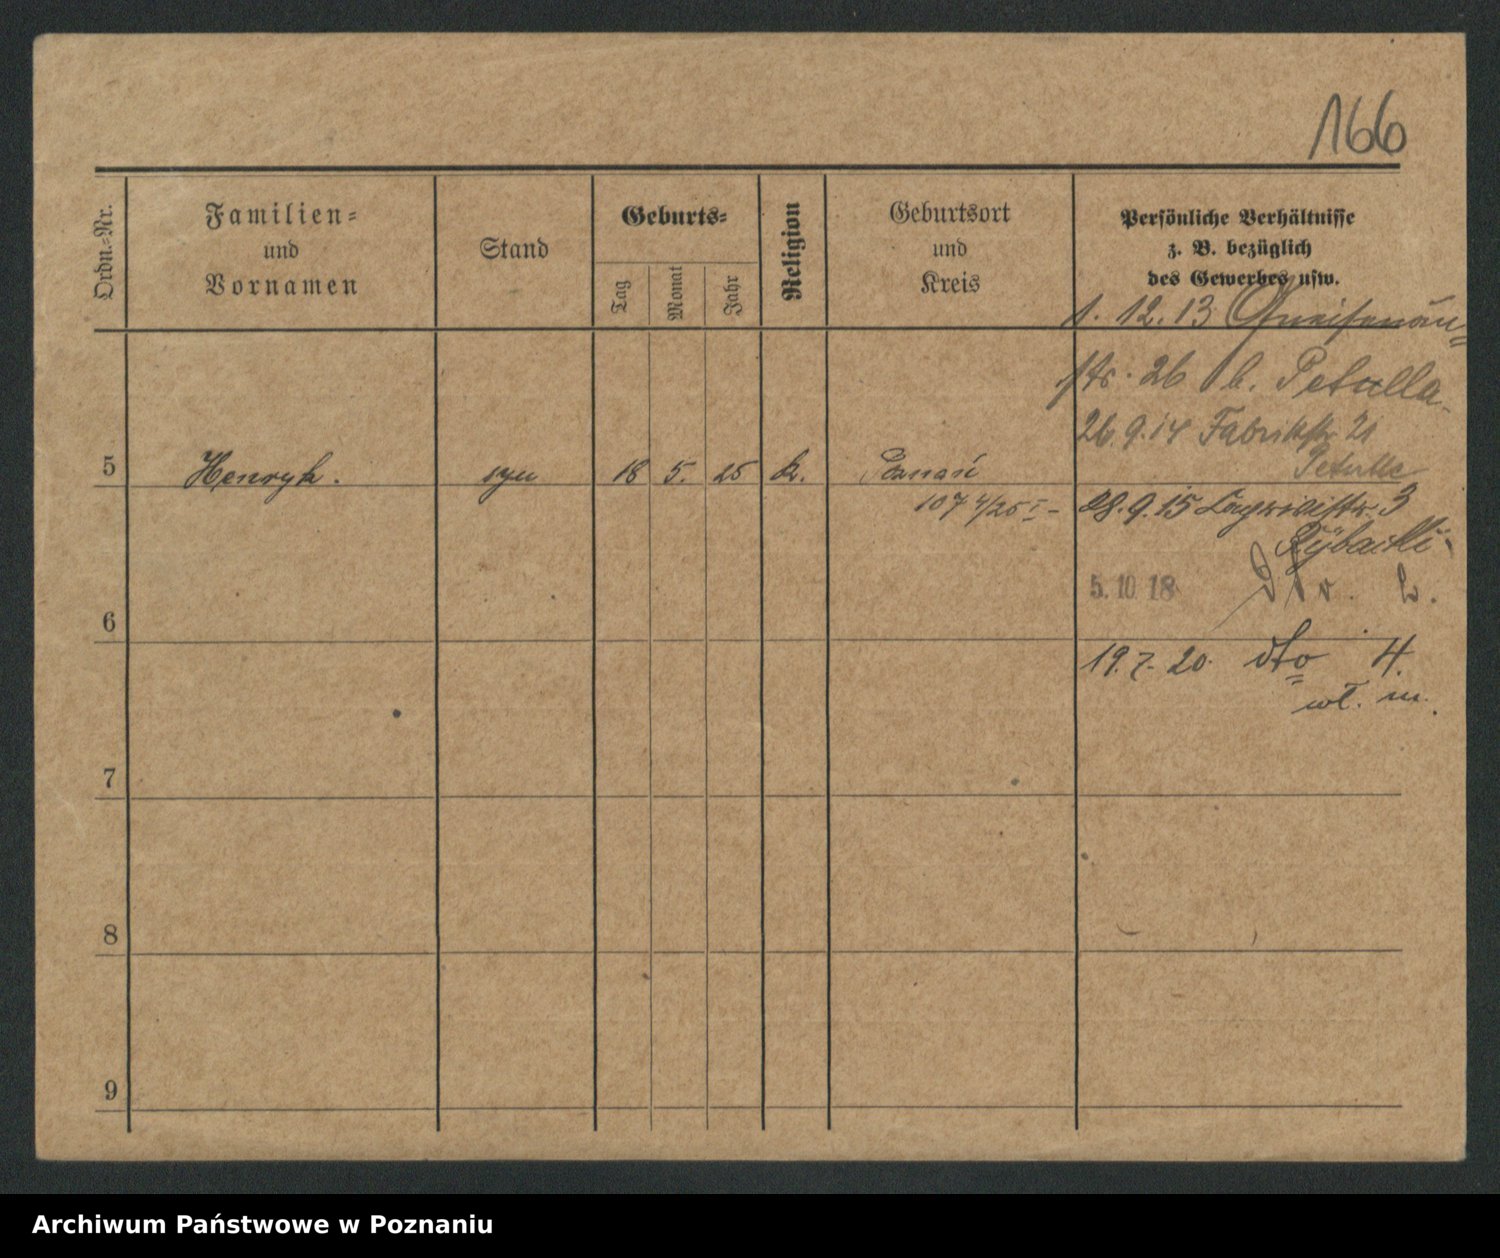 166
Ordn.-Nr.
Familien-
und
Vornamen
Stand
Geburts-
Tag
Monat
Jahr
Religion
Geburtsort
und
Kreis
Persönliche Verhältnisse
z. B. bezüglich
des Gewerbes usw.
1. 12. 13 Gneisenau-
str. 26 b. Petulla
26.9.14 Fabrikstr 21
Petulla
5 Henryk. syn 18 5. 25 k. Poznań
107 4/25 I -
28.9.15 3
Rÿbacki
5. 10 18
6
19. 7. 20. dto 4.
wł. m.
7
8
9
Archiwum Państwowe w Poznaniu